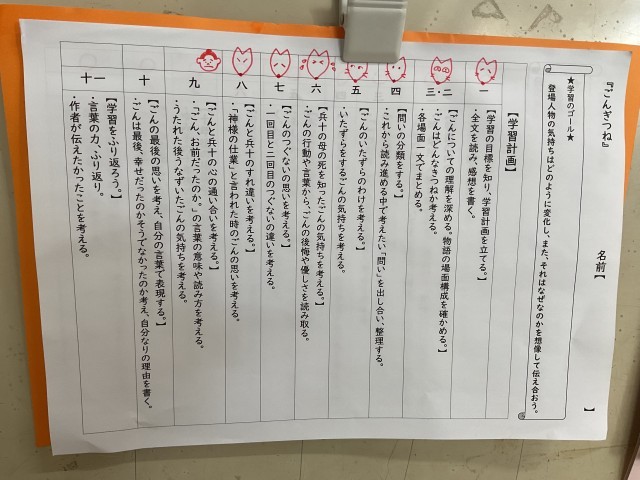 『ごんぎつね』
名前【　　　】
★学習のゴール★
登場人物の気持ちはどのように変化し、また、それはなぜなのかを想像して伝え合おう。
【学習計画】
一
【学習の目標を知り、学習計画を立てる。】
・全文を読み、感想を書く。
二・三
【ごんについての理解を深める。物語の場面構成を確かめる。】
・ごんはどんなきつねか考える。
・各場面一文でまとめる。
四
【問いの分類をする。】
・これから読み進める中で考えたい「問い」を出し合い、整理する。
五
【ごんのいたずらのわけを考える。】
・いたずらをするごんの気持ちを考える。
六
【兵十の母の死を知ったごんの気持ちを考える。】
・ごんの行動や言葉から、ごんの後悔や優しさを読み取る。
七
【ごんのつぐないの思いを考える。】
・一回目と二回目のつぐないの違いを考える。
八
【ごんと兵十のすれ違いを考える。】
・「神様の仕業」と言われた時のごんの思いを考える。
九
【ごんと兵十の心の通い合いを考える。】
・「ごん、お前だったのか。」の言葉の意味や読み方を考える。
・うたれた後うなずいたごんの気持ちを考える。
十
【ごんの最後の思いを考え、自分の言葉で表現する。】
・ごんは最後、幸せだったのかそうでなかったのか考え、自分なりの理由を書く。
十一
【学習をふり返ろう。】
・言葉の力、ふり返り。
・作者が伝えたかったことを考える。